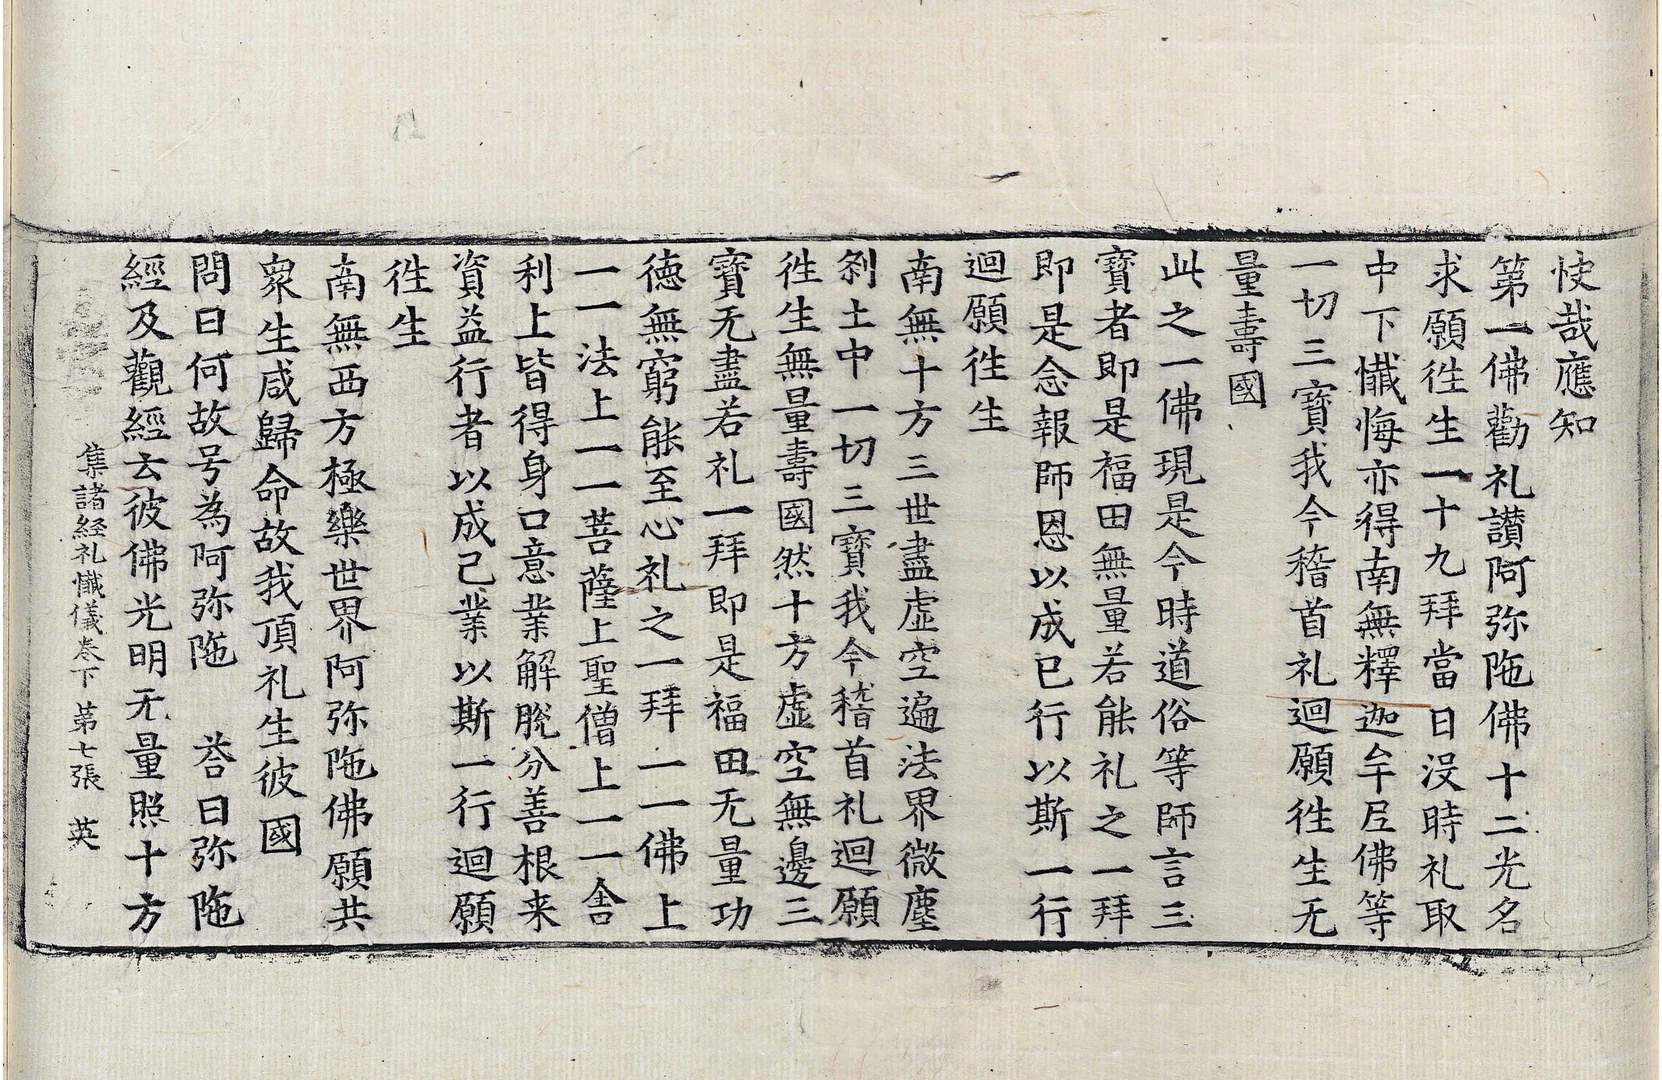 快哉應知
第一佛勸礼讃阿弥陁佛十二光名
求願徃生一十九拜當日沒時礼取
中下懺悔亦得南無釋迦牟尼佛等
一切三寶我今稽首礼迴願徃生无
量壽國
此之一佛現是今時道俗等師言三
寶者即是福田無量若能礼之一拜
即是念報師恩以成已行以斯一行
迴願徃生
南無十方三世盡虛空遍法界微塵
剎土中一切三寶我今稽首礼迴願
徃生無量壽國然十方虛空無邊三
寶无盡若礼一拜即是福田无量功
徳無窮能至心礼之一拜一一佛上
一一法上一一菩薩上聖僧上一一舍
利上皆得身口意業解脫分善根来
資益行者以成己業以斯一行迴願
徃生
南無西方極樂世界阿弥陁佛願共
衆生咸歸命故我頂礼生彼國
問曰何故号為阿弥陁　荅曰弥陁
經及觀經云彼佛光明无量照十方
集諸經礼懺儀卷下　第七張　英